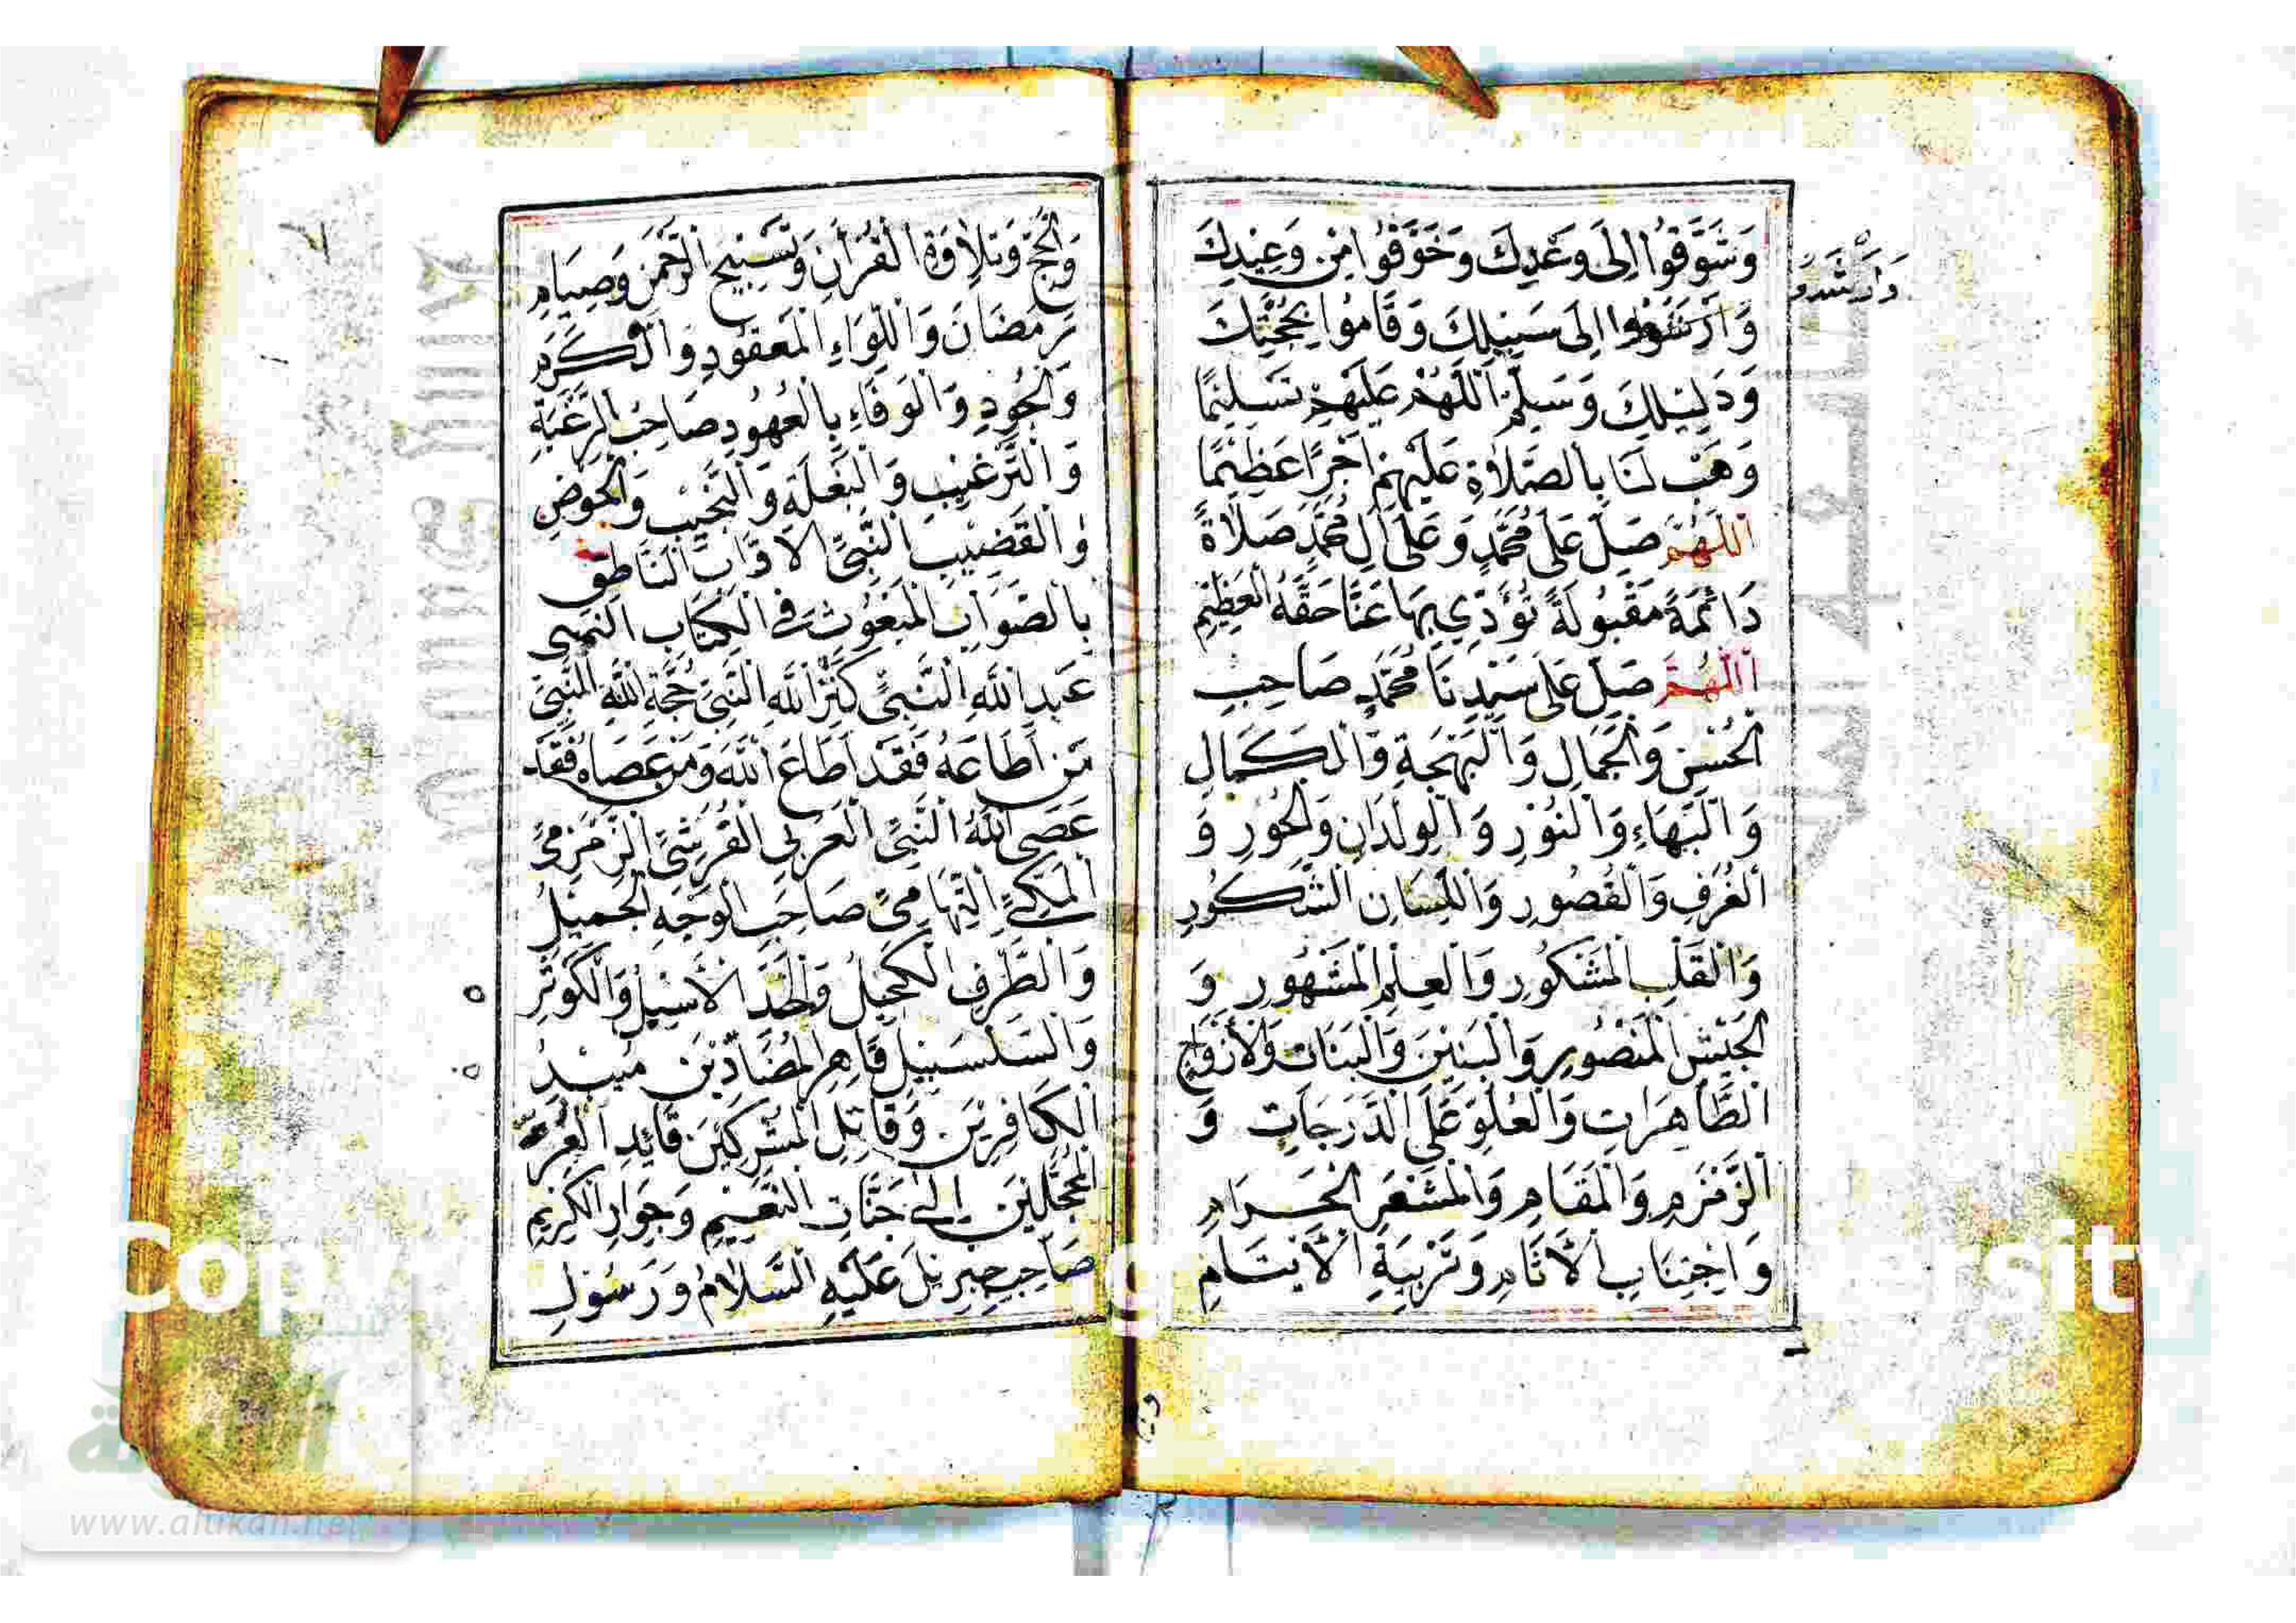 وَشَوَّقُوا إِلَى وَعْدِكَ وَخَوَّفُوا مِنْ وَعِيدِكَ
وَأَرْشَدُوا إِلَى سَبِيلِكَ وَقَامُوا بِحُجَّتِكَ
وَدَلِيلِكَ وَسَلِّمْ اَللَّهُمَّ عَلَيْهِمْ تَسْلِيمًا
وَهَبْ لَنَا بِالصَّلَاةِ عَلَيْهِمْ أَجْرًا عَظِيمًا
اَللَّهُمَّ صَلِّ عَلَى مُحَمَّدٍ وَعَلَى آلِ مُحَمَّدٍ صَلَاةً
دَائِمَةً مَقْبُولَةً تُؤَدِّي بِهَا عَنَّا حَقَّهُ الْعَظِيمَ
اَللَّهُمَّ صَلِّ عَلَى سَيِّدِنَا مُحَمَّدٍ صَاحِبِ
الْحُسْنِ وَالْجَمَالِ وَالْبَهْجَةِ وَالْكَمَالِ
وَالْبَهَاءِ وَالنُّورِ وَالْوِلْدَانِ وَالْحُورِ وَ
الْغُرَفِ وَالْقُصُورِ وَاللِّسَانِ الشَّكُورِ
وَالْقَلْبِ الْمَشْكُورِ وَالْعِلْمِ الْمَشْهُورِ وَ
الْجَيْشِ الْمَنْصُورِ وَالْبَنِينَ وَالْبَنَاتِ وَالْأَزْوَاجِ
الطَّاهِرَاتِ وَالْعُلُوِّ عَلَى الدَّرَجَاتِ وَ
الزَّمْزَمِ وَالْمَقَامِ وَالْمَشْعَرِ الْحَرَامِ
وَاجْتِنَابِ الْآثَامِ وَتَرْبِيَةِ الْأَيْتَامِ
وَأَرْشَدُوا
وَالْحَجِّ وَتِلَاوَةِ الْقُرْآنِ وَتَسْبِيحِ الرَّحْمَنِ وَصِيَامِ
رَمَضَانَ وَاللِّوَاءِ الْمَعْقُودِ وَالْكَرَمِ
وَالْجُودِ وَالْوَفَاءِ بِالْعُهُودِ صَاحِبِ الرَّغْبَةِ
وَالتَّرْغِيبِ وَالْبَغْلَةِ وَالنَّجِيبِ وَالْحَوْضِ
وَالْقَضِيبِ النَّبِيِّ الْأَوَّابِ النَّاطِقِ
بِالصَّوَابِ الْمَبْعُوثِ فِي الْكِتَابِ النَّبِي
عَبْدِ اللَّهِ النَّبِيِّ كَنْزِ اللَّهِ النَّبِيِّ حُجَّةِ اللَّهِ النَّبِيِّ
مَنْ أَطَاعَهُ فَقَدْ أَطَاعَ اللَّهَ وَمَنْ عَصَاهُ فَقَدْ
عَصَى اللَّهَ النَّبِيِّ الْعَرَبِي الْقُرَشِيِّ الزَّمْزَمِيِّ
الْمَكِّيِّ التِّهَامِيِّ صَاحِبِ الْوَجْهِ الْجَمِيلِ
وَالطَّرْفِ الْكَحِيلِ وَالْخَدِّ الْأَسِيلِ وَالْكَوْثَرِ
وَالسَّلْسَبِيلِ قَاهِرِ الْمُضَادِّينَ مُبِيدِ
الْكَافِرِينَ وَقَاتِلِ الْمُشْرِكِينَ قَائِدِ الْغُرِّ
الْمُحَجَّلِينَ إِلَى جَنَّاتِ النَّعِيمِ وَجِوَارِ الْكَرِيمِ
صَاحِبِ جِبْرِيلَ عَلَيْهِ السَّلَامُ وَرَسُولِ
www.alukah.net